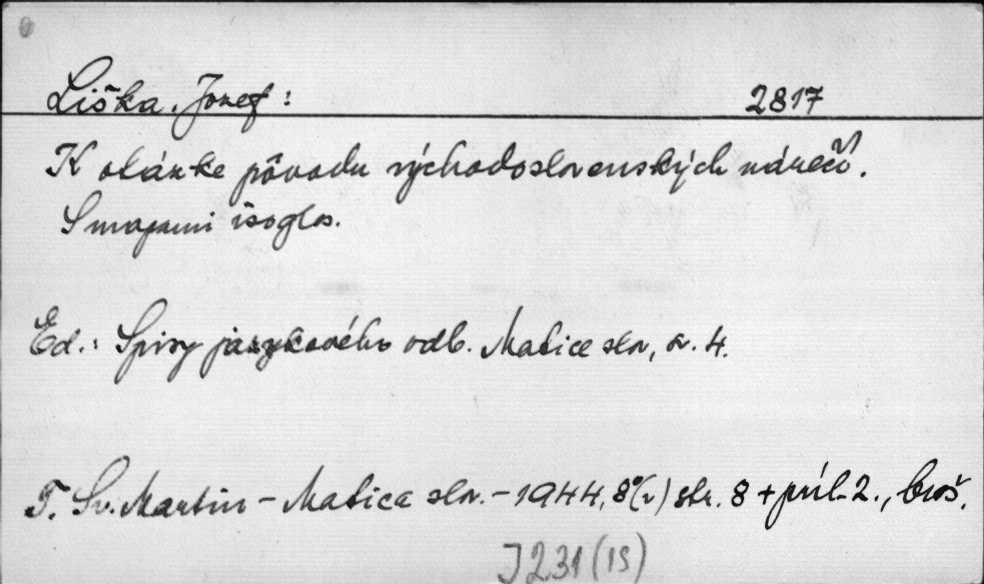 Liška, Jozef: 2817
K otázke pôvodu východoslovenských nárečí.
S mapami isoglos.
Ed.: Spisy jazykového odb. Matice slov, sv. 4.
T. Sv. Martin – Matica slov. – 1944, 8°(v) str. 8 + príl. 2., brož.
J231(15)